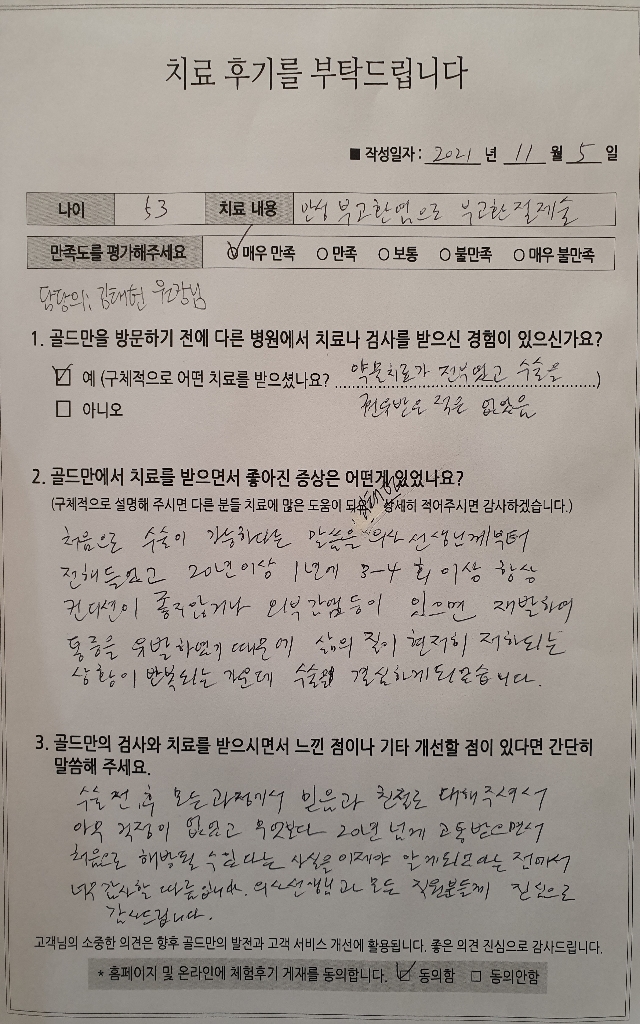 치료 후기를 부탁드립니다
■ 작성일자 : 2021 년 11 월 5 일
나이 53 치료 내용 만성 부고환염으로 부고환절제술
만족도를 평가해주세요 매우 만족 만족 보통 불만족 매우 불만족
담당의: 김태헌 원장님
1. 골드만을 방문하기 전에 다른 병원에서 치료나 검사를 받으신 경험이 있으신가요?
예 (구체적으로 어떤 치료를 받으셨나요? 약물치료가 전부였고 수술을 )
아니오 권유받은 적은 없었음
2. 골드만에서 치료를 받으면서 좋아진 증상은 어떤게 있었나요?
(구체적으로 설명해 주시면 다른 분들 치료에 많은 도움이 상세히 적어주시면 감사하겠습니다.)
처음으로 수술이 가능하다는 말씀을 의사선생님께부터
전해들었고 20년이상 1년에 3-4회 이상 항상
컨디션이 좋지않거나 외부감염등이 있으면 재발하여
통증을 유발하였기 때문에 삶의 질이 현저히 저하되는
상황이 반복되는 가운데 수술을 결심하게되었습니다.
3. 골드만의 검사와 치료를 받으시면서 느낀 점이나 기타 개선할 점이 있다면 간단히
말씀해 주세요.
수술 전,후 모든과정에서 믿음과 친절로 대해주셔서
아무 걱정이 없었고 무엇보다 20년 넘게 고통받으면서
처음으로 해방될 수 있다는 사실을 이제야 알게되었다는 점에서
너무 감사할 따름입니다. 의사선생님과 모든 직원분들께 진심으로
감사드립니다.
고객님의 소중한 의견은 향후 골드만의 발전과 고객 서비스 개선에 활용됩니다. 좋은 의견 진심으로 감사드립니다.
* 홈페이지 및 온라인에 체험후기 게재를 동의합니다. 동의함 동의안함